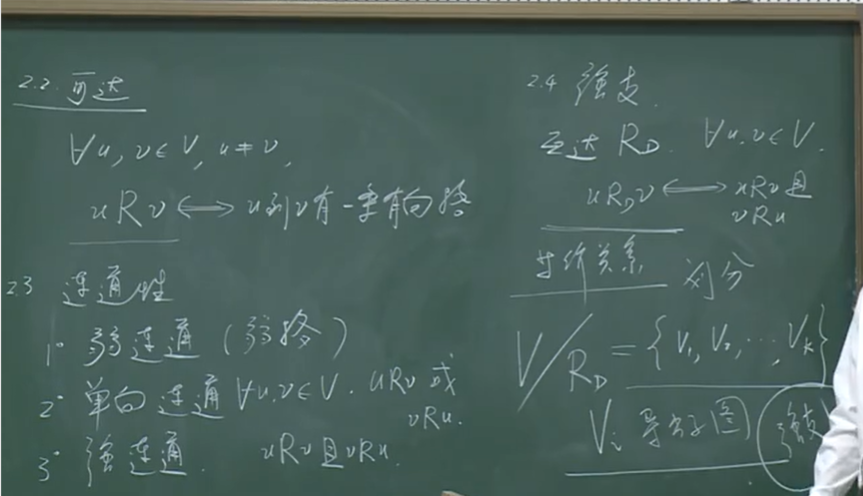 2.2. 可达
∀u,v∈V, u≠v,
uRv ⟷ u到v有一条有向路
2.3 连通性
1° 弱连通 (弱路)
2° 单向连通 ∀u,v∈V. uRv 或
vRu.
3° 强连通. uRv且vRu.
2.4 强支.
互达 R_D. ∀u,v∈V.
uR_Dv ⟷ uRv且
vRu
等价关系 划分
V/R_D = {V₁, V₂, ..., V_k}
V_i 导出子图 强支